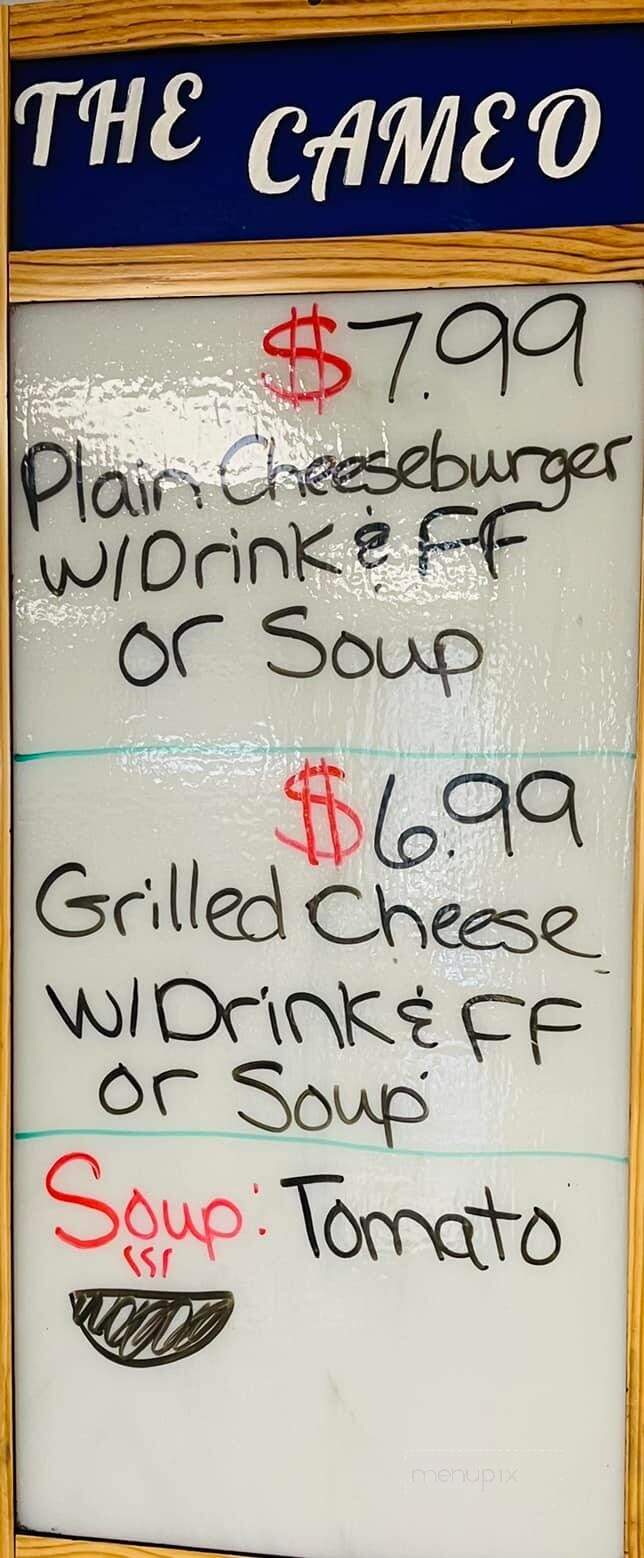 THE CAMEO
$7.99
Plain Cheeseburger
W/Drink & FF
or Soup
$6.99
Grilled Cheese
W/Drink & FF
or Soup
Soup: Tomato
menupix